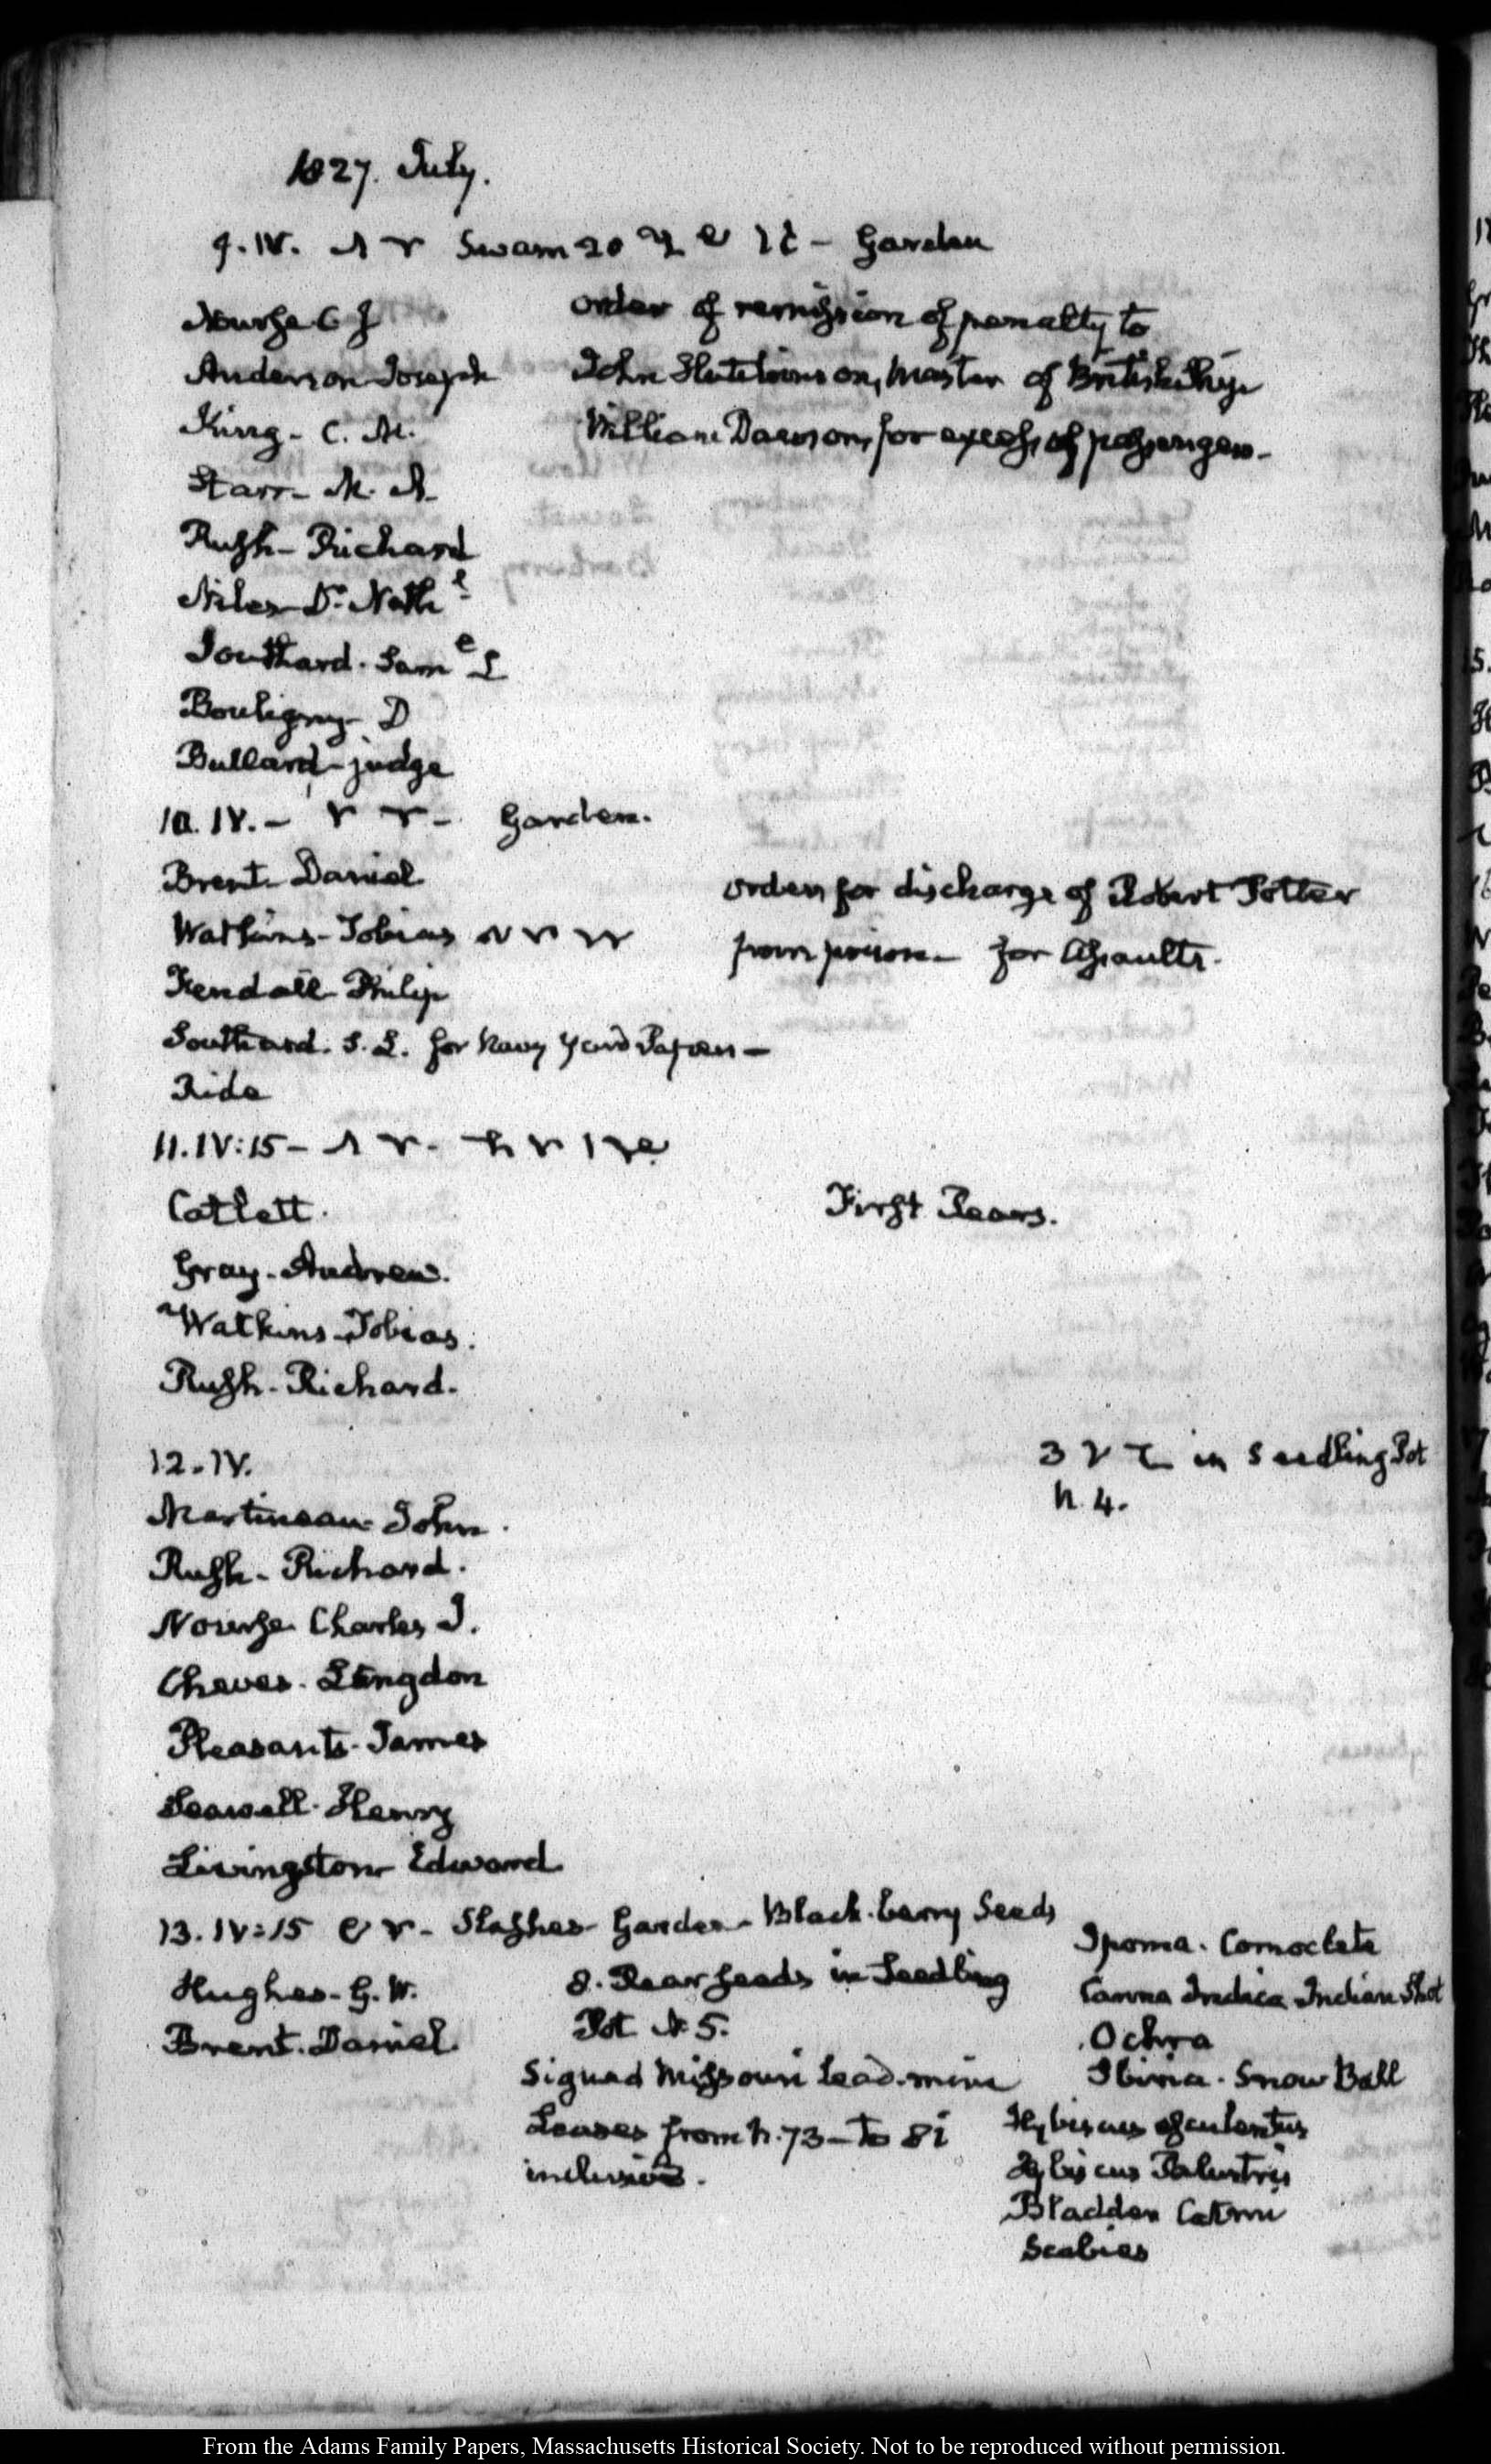 1827. July.
9. IV. Swam 20 Garden
Nourse C J
order of remission of penalty to
Anderson Joseph
John Hutchinson, Master of British Ship
King - C. M.
William Dawson, for excess of passengers -
Starr - 
Rush - Richard
Niles - Dr. Nathl
Southard. Saml L
Bouligny - D
Bullard - judge
10. IV. - Garden.
Brent - Daniel
order for discharge of Robert Potter
Watkins - Tobias
from prison - for Assaults.
Fendall Philip
Southard. S. L. for Navy Yard Papers -
Ride
11. IV:15 -
Catlett.
First Pears.
Gray - Andrew.
Watkins - Tobias.
Rush - Richard.
12. IV.
3 in Seedling Pot
N. 4.
Martineau - John.
Rush - Richard.
Nourse. Charles J.
Cheves. Langdon
Pleasants - James
Seawell. Henry
Livingston - Edward.
13. IV:15 Slashes - Garden - Black-berry Seeds
Hughes - G. W.
8. Pear seeds in Seedling
Brent. Daniel.
Pot N 5.
Signed Missouri Lead-mine
Leases from N. 73 - to 81
inclusive.
Ipoma.
Canna Indica Indian Shot
Ochra
Snow Ball
Hybiscus esculentus
Hybiscus Palustris
Bladder
Scabies